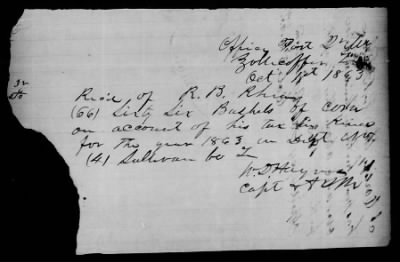 Office Post Qr Mr
Zollicoffer Ten
Oct 1st 1863
Recd of R. B. Rhea
(66) Sixty Six Bushels of corn
on account of his tax in Kind
for the year 1863 in Dist No
(4) Sullivan Co Ten
Capt & A Q M